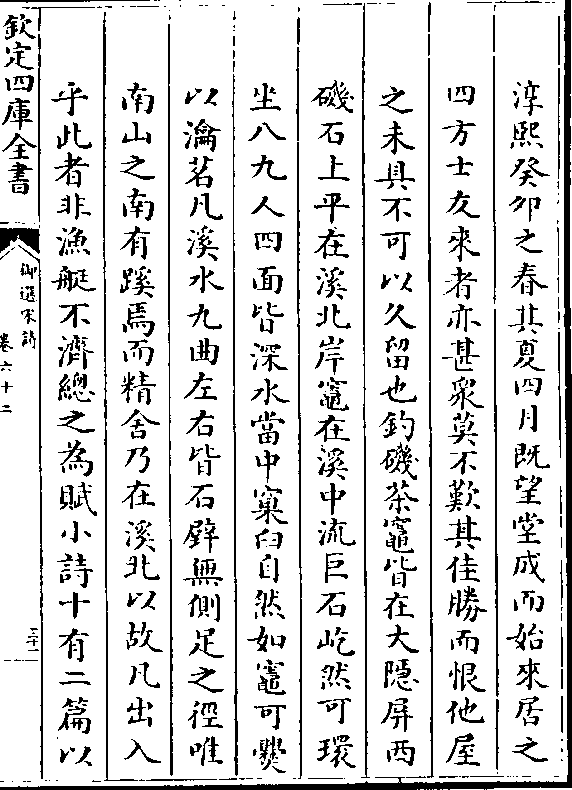 淳熙癸卯之春其夏四月既望堂成而始來居之
四方士友來者亦甚衆莫不歎其佳勝而恨他屋
之未具不可以久留也釣磯茶竈皆在大隱屏西
磯石上平在溪北岸竈在溪中流巨石屹然可環
坐八九人四面皆深水當中窠臼自然如竈可爨
以瀹茗凡溪水九曲左右皆石壁無側足之徑唯
南山之南有蹊焉而精舍乃在溪北以故凡出入
乎此者非漁艇不濟總之為賦小詩十有二篇以
欽定四庫全書
御選宋詩
卷六十二